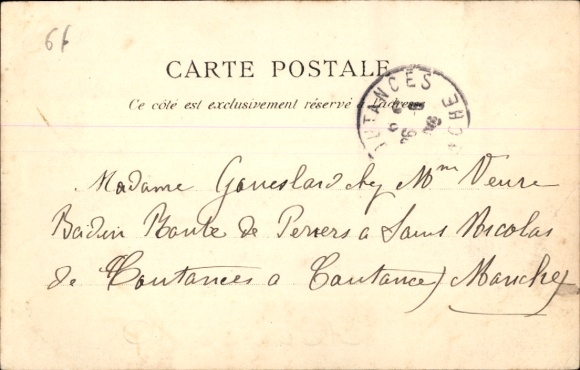 6f
CARTE POSTALE
Ce côté est exclusivement réservé à l'adresse
COUTANCES
MANCHE
Madame chez Mme Veuve
Badin Route de Periers a Saint Nicolas
de Coutances a Coutances Manche